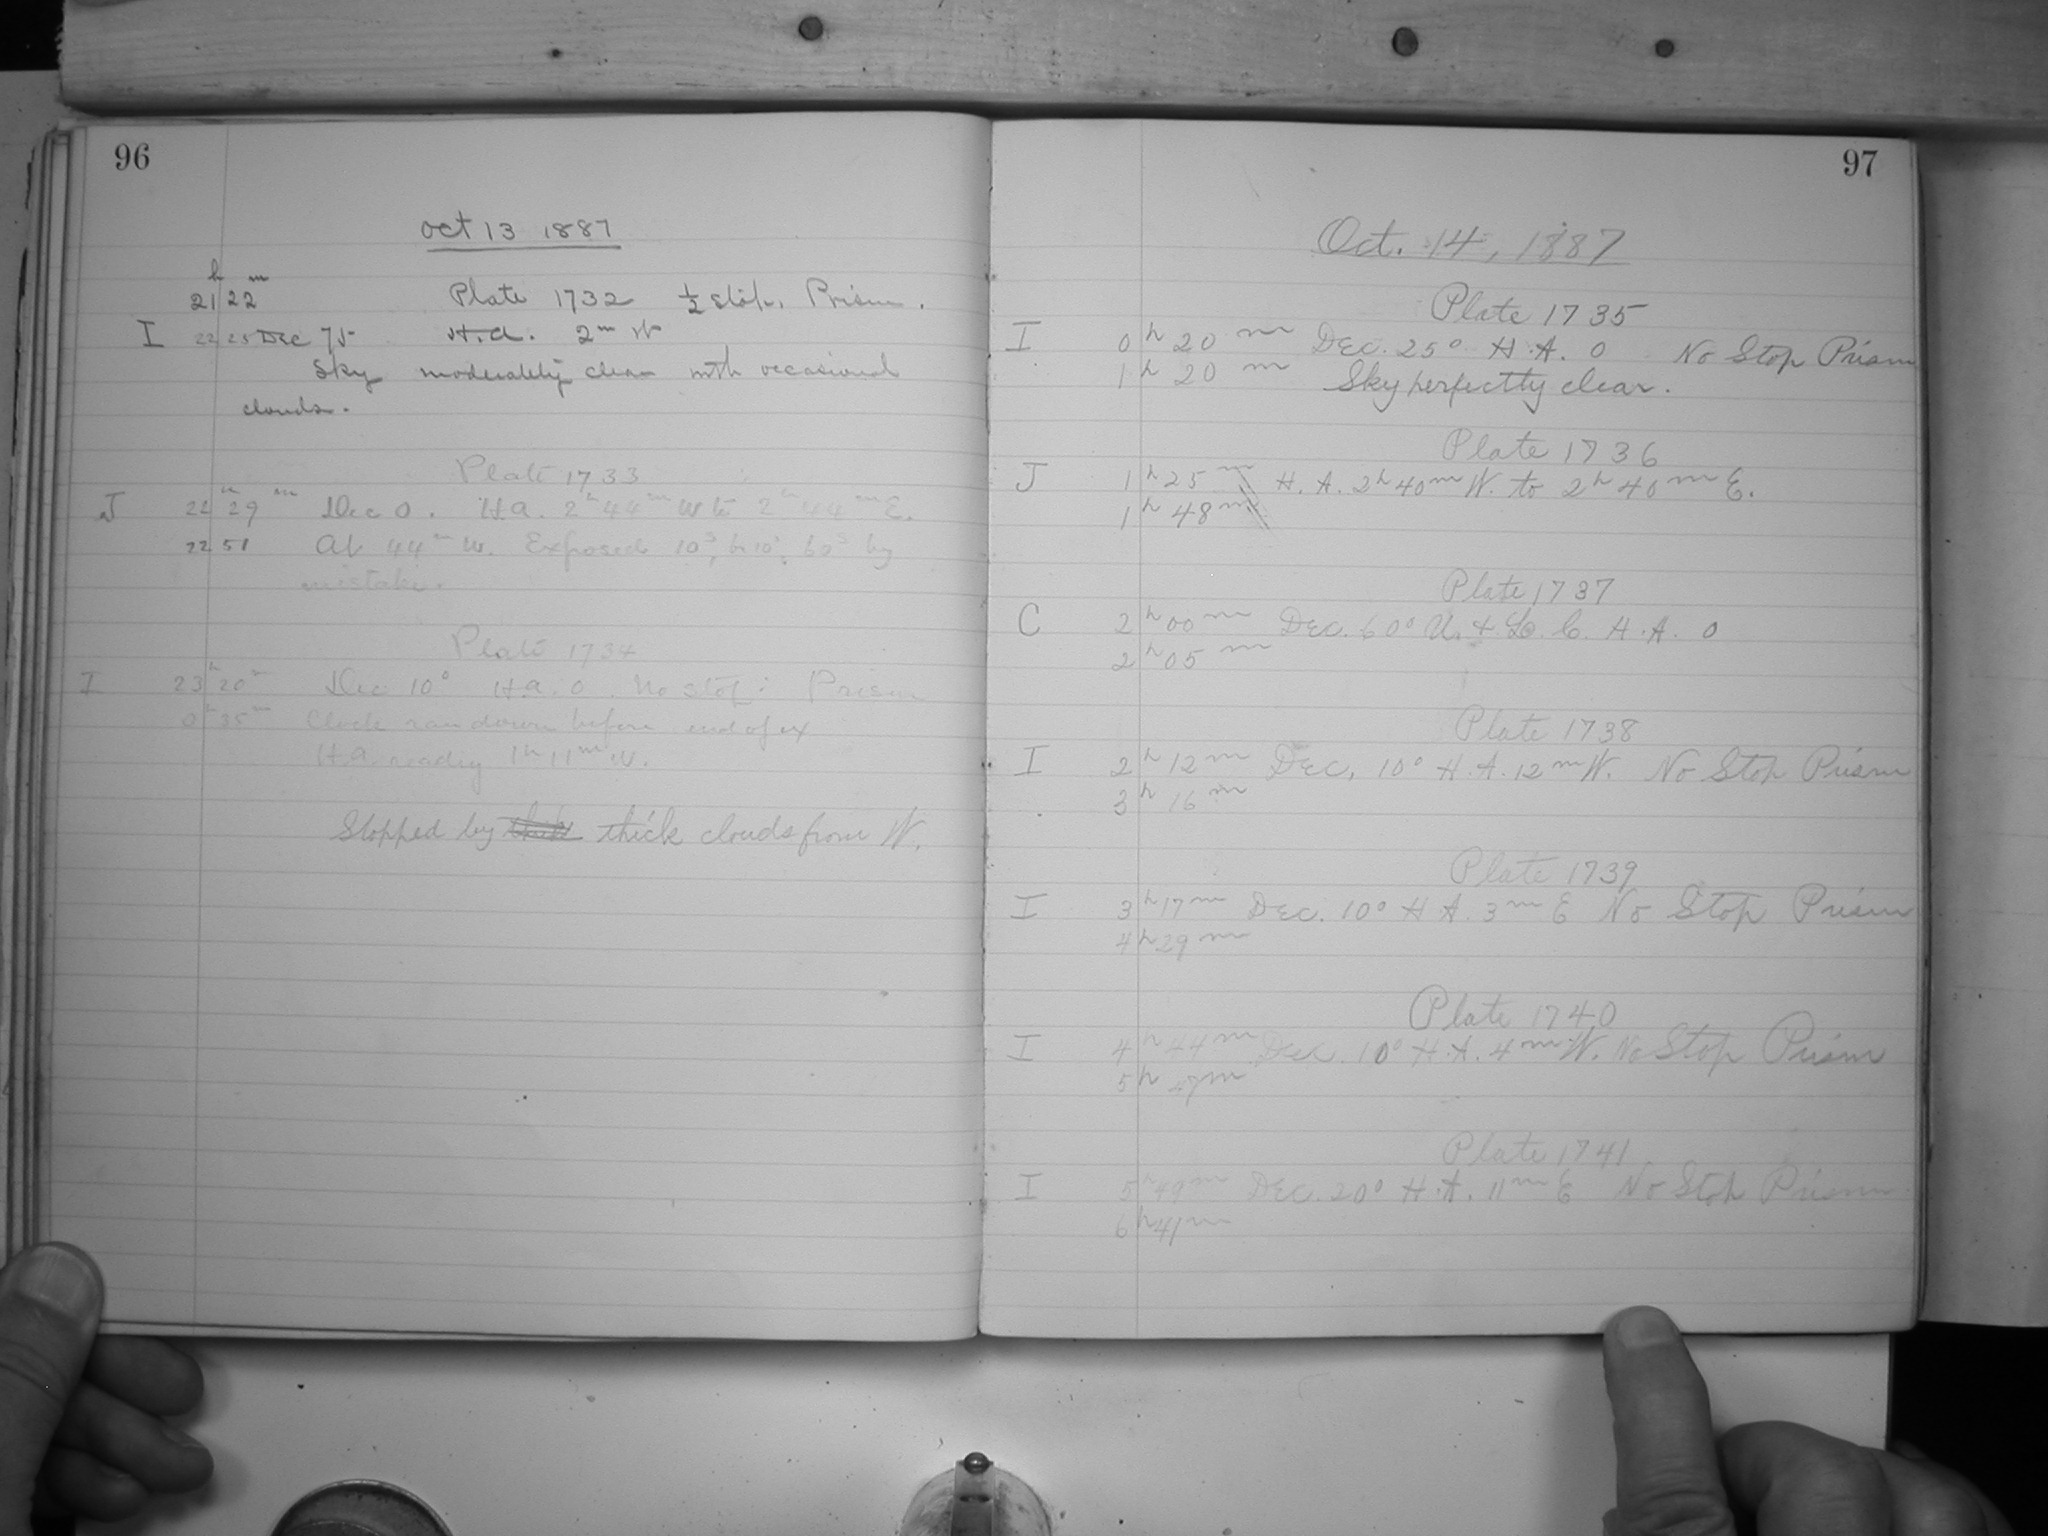 96
Oct 13 1887
21h 22m Plate 1732 ½ stop. Prism.
I 22 25 Dec 75 H.A. 2m W
Sky moderately clear with occasional
clouds.
Plate 1733
J 22h 29m Dec 0. H.a. 2h 44m W to 2h 44m E.
22 51 At 44m W. Exposed 10s, 60s by
mistake.
Plate 1734
I 23h 20m Dec 10° H.a. 0. No stop: Prism
0h 35m Clock ran down before end of ex
H.a. reading 1h 11m W.
Stopped by thick clouds from W.
97
Oct. 14, 1887
Plate 1735
I 0h 20m Dec. 25° H.A. 0 No Stop Prism
1h 20m Sky perfectly clear.
Plate 1736
J 1h 25m H.A. 2h 40m W. to 2h 40m E.
1h 48m
Plate 1737
C 2h 00m Dec. 60° U. & Lo. C. H.A. 0
2h 05m
Plate 1738
I 2h 12m Dec. 10° H.A. 12m W. No Stop Prism
3h 16m
Plate 1739
I 3h 17m Dec. 10° H A. 3m E No Stop Prism
4h 29m
Plate 1740
I 4h 44m Dec. 10° H.A. 4m W. No Stop Prism
5h 47m
Plate 1741
I 5h 49m Dec. 20° H.A. 11m E No Stop Prism
6h 41m